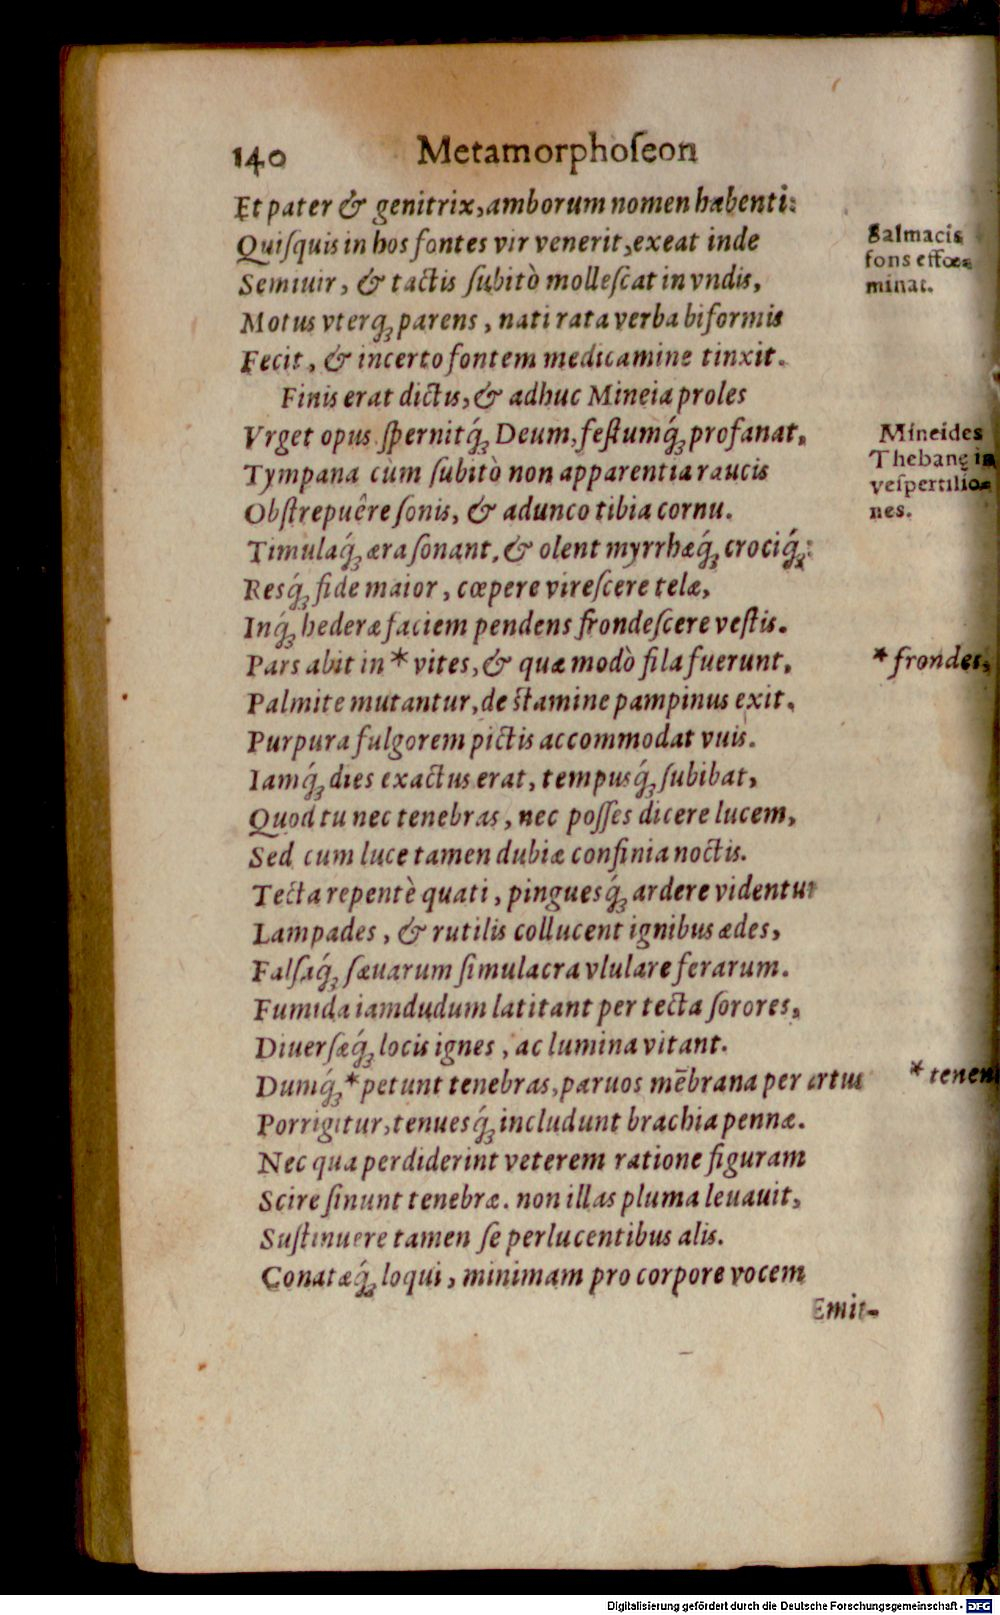 140 Metamorphoſeon
Et pater & genitrix, amborum nomen habenti:
Quiſquis in hos fontes vir venerit, exeat inde
Salmacis
fons effœ-
minat.
Semiuir, & tactis ſubitò molleſcat in vndis,
Motus vterq́ꝫ parens, nati rata verba biformis
Fecit, & incerto fontem medicamine tinxit.
Finis erat dictis, & adhuc Mineia proles
Vrget opus ſpernitq́ꝫ Deum, feſtumq́ꝫ profanat,
Mineides
Thebanę in
veſpertilio-
nes.
Tympana cùm ſubitò non apparentia raucis
Obſtrepuêre ſonis, & adunco tibia cornu.
Timulaq́ꝫ æra ſonant, & olent myrrhæq́ꝫ crociq́ꝫ:
Resq́ꝫ fide maior, cœpere vireſcere telæ,
Inq́ꝫ hederæ faciem pendens frondeſcere veſtis.
Pars abit in * vites, & quæ modò fila fuerunt,
* frondes,
Palmite mutantur, de ſtamine pampinus exit.
Purpura fulgorem pictis accommodat vuis.
Iamq́ꝫ dies exactus erat, tempusq́ꝫ ſubibat,
Quod tu nec tenebras, nec poſſes dicere lucem,
Sed cum luce tamen dubiæ confinia noctis.
Tecta repentè quati, pinguesq́ꝫ ardere videntur
Lampades, & rutilis collucent ignibus ædes,
Falſaq́ꝫ ſæuarum ſimulacra vlulare ferarum.
Fumida iamdudum latitant per tecta ſorores,
Diuerſæq́ꝫ locis ignes, ac lumina vitant.
Dumq́ꝫ * petunt tenebras, paruos mēbrana per artus
* tenent
Porrigitur, tenuesq́ꝫ includunt brachia pennæ.
Nec qua perdiderint veterem ratione figuram
Scire ſinunt tenebræ. non illas pluma leuauit,
Suſtinuere tamen ſe perlucentibus alis.
Conatæq́ꝫ loqui, minimam pro corpore vocem
Emit-
Digitalisierung gefördert durch die Deutsche Forschungsgemeinschaft - DFG